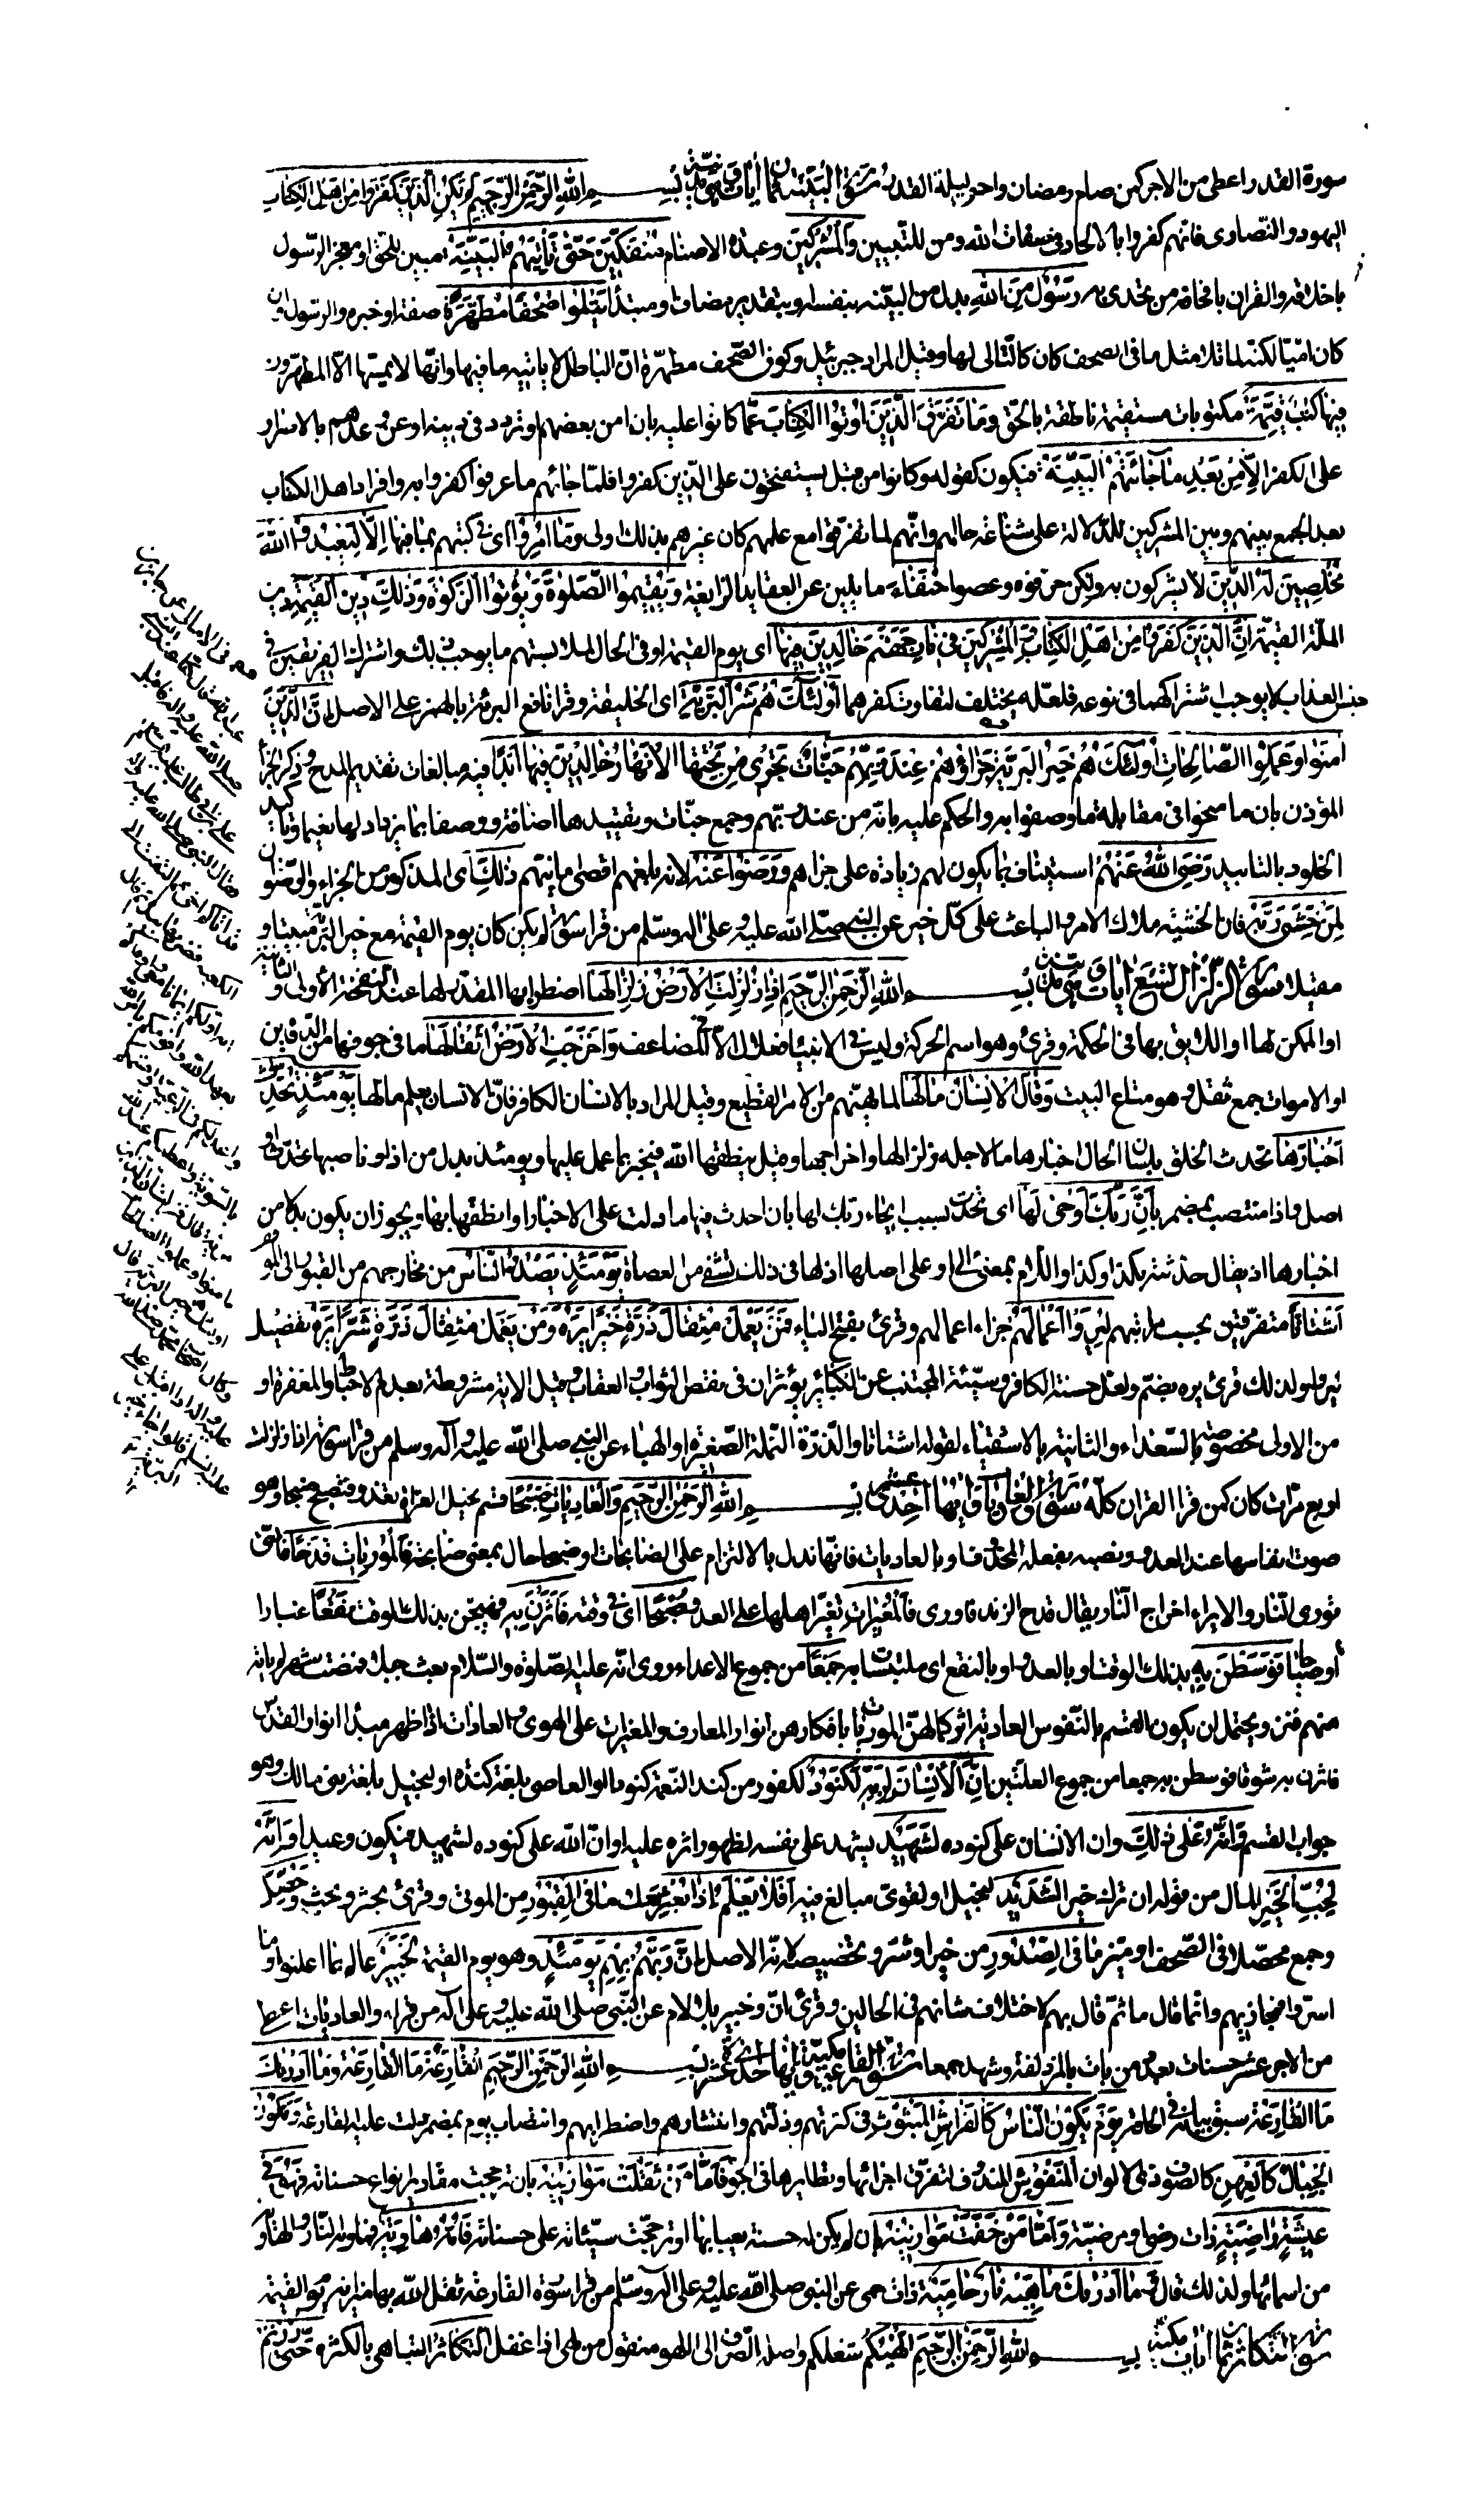 سورة القدر اعطى من الاجر كمن صام رمضان واحيى ليلة القدر سورة البينة ثمان ايات بِسْمِ اللهِ الرَّحْمٰنِ الرَّحِيمِ لَمْ يَكُنِ الَّذِينَ كَفَرُوا مِنْ اَهْلِ الْكِتَابِ
اليهود والنصارى فانهم كفروا بالالحاد فى صفات الله ومن للتبيين وَالْمُشْرِكِينَ وعبدة الاصنام مُنْفَكِّينَ حَتّٰى تَأْتِيَهُمُ الْبَيِّنَةُ مبين للحق او معجز الرسول
باخلاقه والقران بافحامه من تحدى به رَسُولٌ مِنَ اللهِ بدل من البينة بنفسه او بتقدير مضاف او مبتدأ يَتْلُوا صُحُفًا مُطَهَّرَةً صفته او خبره والرسول وان
كان اميا لكنه لما تلا مثل ما فى الصحف كان كالتالى لها وقيل المراد جبرئيل وكون الصحف مطهرة ان الباطل لا يأتيه ما فيها وانها لا يمسها الا المطهرون
فِيهَا كُتُبٌ قَيِّمَةٌ مكتوبات مستقيمة ناطقة بالحق وَمَا تَفَرَّقَ الَّذِينَ اُوتُوا الْكِتَابَ عما كانوا عليه بان امن بعضهم او تردد فى دينه او عن وعدهم بالاصرار
على الكفر اِلَّا مِنْ بَعْدِ مَا جَاءَتْهُمُ الْبَيِّنَةُ فيكون كقوله وكانوا من قبل يستفتحون على الذين كفروا فلما جائهم ما عرفوا كفروا به وافراد اهل الكتاب
بعد الجمع بينهم وبين المشركين للدلالة على شناعة حالهم وانهم لما تفرقوا مع علمهم كان غيرهم بذلك اولى وَمَا اُمِرُوا اى فى كتبهم بما فيها اِلَّا لِيَعْبُدُوا اللهَ
مُخْلِصِينَ لَهُ الدِّينَ لا يشركون به ولكن حرفوه وعصوا حُنَفَاءَ مايلين عن العقايد الزايغة وَيُقِيمُوا الصَّلٰوةَ وَيُؤْتُوا الزَّكٰوةَ وَذٰلِكَ دِينُ الْقَيِّمَةِ دين
الملة القيمة اِنَّ الَّذِينَ كَفَرُوا مِنْ اَهْلِ الْكِتَابِ وَالْمُشْرِكِينَ فِى نَارِ جَهَنَّمَ خَالِدِينَ فِيهَا اى يوم القيمة او فى الحال لملابستهم ما يوجب ذلك واشتراك الفريقين فى
جنس العذاب لا يوجب اشتراكهما فى نوعه فلعله يختلف لتفاوت كفرهما اُولٰئِكَ هُمْ شَرُّ الْبَرِيَّةِ اى الخليقة وقرا نافع البريئة بالهمز على الاصل اِنَّ الَّذِينَ
اٰمَنُوا وَعَمِلُوا الصَّالِحَاتِ اُولٰئِكَ هُمْ خَيْرُ الْبَرِيَّةِ جَزَاؤُهُمْ عِنْدَ رَبِّهِمْ جَنَّاتُ تَجْرِى مِنْ تَحْتِهَا الْاَنْهَارُ خَالِدِينَ فِيهَا اَبَدًا فيه مبالغات تقديم المدح وذكر الجزاء
المؤذن بان ما منحوا فى مقابلة ما وصفوا به والحكم عليه بانه من عند ربهم وجمع جنات وتقييدها اضافة ووصفا بما يزداد لها نعيما وتأكيد
الخلود بالتابيد رَضِىَ اللهُ عَنْهُمْ استيناف بما يكون لهم زيادة على جزائهم وَرَضُوا عَنْهُ لانه بلغهم اقصى امانيهم ذٰلِكَ اى المذكور من الجزاء والرضوان
لِمَنْ خَشِىَ رَبَّهُ فان الخشية ملاك الامر والباعث على كل خير عن النبى صلى الله عليه وعلى اله وسلم من قرا سورة لم يكن كان يوم القيمة مع خير البرية مبيتا و
مقيلا سورة الزلزال تسع ايات بِسْمِ اللهِ الرَّحْمٰنِ الرَّحِيمِ اِذَا زُلْزِلَتِ الْاَرْضُ زِلْزَالَهَا اضطرابها المقدر لها عند النفخة الاولى او الثانية
او الممكن لها او اللايق بها فى الحكمة وقرئ وهو اسم الحركة وليس فى الابنية فعلال الا فى المضاعف وَاَخْرَجَتِ الْاَرْضُ اَثْقَالَهَا ما فى جوفها من الدفاين
او الاموات جمع ثقل وهو متاع البيت وَقَالَ الْاِنْسَانُ مَا لَهَا لما يبهرهم من الامر الفظيع وقيل المراد بالانسان الكافر فان الانسان يعلم ما لها يَوْمَئِذٍ تُحَدِّثُ
اَخْبَارَهَا تحدث الخلق بلسان الحال اخبارها ما لاجله زلزالها واخراجها وقيل ينطقها الله فيخبر بما عمل عليها ويومئذ بدل من اذا وناصبها تحدث او
اصل واذا منتصب بمضمر بِاَنَّ رَبَّكَ اَوْحٰى لَهَا اى تحدث بسبب ايحاء ربك لها بان احدث فيها ما دلت على الاخبار او انطقها بها ويجوز ان يكون بدلا من
اخبارها اذ يقال حدثته بكذا وكذا واللام بمعنى الى او على اصلها اذ لها فى ذلك تشفى من العصاة يَوْمَئِذٍ يَصْدُرُ النَّاسُ من مخارجهم من القبور الى الموقف
اَشْتَاتًا متفرقين بحسب مراتبهم لِيُرَوْا اَعْمَالَهُمْ جزاء اعمالهم وقرئ بفتح الياء فَمَنْ يَعْمَلْ مِثْقَالَ ذَرَّةٍ خَيْرًا يَرَهُ وَمَنْ يَعْمَلْ مِثْقَالَ ذَرَّةٍ شَرًّا يَرَهُ تفصيل
ليروا ولذلك قرئ يره بضم ولعل حسنة الكافر وسيئة المجتنب عن الكبائر يؤثران فى نقص الثواب والعقاب وقيل الاية مشروطة بعدم الاحباط والمغفرة او
من الاولى مخصوصة بالسعداء والثانية بالاشقياء لقوله اشتاتا والذرة النملة الصغيرة او الهباء عن النبى صلى الله عليه وآله وسلم من قرا سورة اذا زلزلت
اربع مرات كان كمن قرا القران كله سورة والعاديات وايها احدى عشر بِسْمِ اللهِ الرَّحْمٰنِ الرَّحِيمِ وَالْعَادِيَاتِ ضَبْحًا قسم بخيل الغزاة تعدو فتضبح ضبحا وهو
صوت انفاسها عند العدو ونصبه بفعله المحذوف او بالعاديات فانها تدل بالالتزام على الضابحات او ضبحا حال بمعنى ضابحة فَالْمُورِيَاتِ قَدْحًا فالتى
تورى النار والايراء اخراج النار يقال قدح الزند فاورى فَالْمُغِيرَاتِ تغير اهلها على العدو صُبْحًا اى فى وقته فَاَثَرْنَ بِهِ فهيجن بذلك الوقت نَقْعًا غبارا
او صياحا فَوَسَطْنَ بِهِ بذلك الوقت او بالعدو او بالنقع اى ملتبسات به جَمْعًا من جموع الاعداء روى انه عليه الصلوة والسلام بعث خيلا فمضت شهر لم يأته
منهم فنزلت ويحتمل ان يكون القسم بالنفوس العادية اثر كمالهن الموريات بافكارهن انوار المعارف والمغيرات على الهوى والعادات اذا ظهر مبدأ انوار القدس
فاثرن به شوقا فوسطن به جمعا من جموع العليين اِنَّ الْاِنْسَانَ لِرَبِّهِ لَكَنُودٌ لكفور من كند النعمة كنودا او العاصى بلغة كندة او لبخيل بلغة بنى مالك وهو
جواب القسم وَاِنَّهُ عَلٰى ذٰلِكَ وان الانسان على كنوده لَشَهِيدٌ يشهد على نفسه لظهور اثره عليه او ان الله على كنوده لشهيد فيكون وعيدا وَاِنَّهُ
لِحُبِّ الْخَيْرِ المال من قوله ان ترك خير لَشَدِيدٌ لبخيل او لقوى مبالغ فيه اَفَلَا يَعْلَمُ اِذَا بُعْثِرَ بعث مَا فِى الْقُبُورِ من الموتى وقرئ بحثر وبحث وَحُصِّلَ
وجمع محصلا فى الصحف او ميز مَا فِى الصُّدُورِ من خير او شر وتخصيصه لانه الاصل اِنَّ رَبَّهُمْ بِهِمْ يَوْمَئِذٍ وهو يوم القيمة لَخَبِيرٌ عالم بما اعلنوا وما
اسروا فيجازيهم وانما قال ما ثم قال بهم لاختلاف شانهم فى الحالين وقرئ ان وخبير بلا لام عن النبى صلى الله عليه وعلى آله من قرا والعاديات اعطى
من الاجر عشر حسنات بعدد من بات بالمزدلفة وشهد جمعا سورة القارعة مكية وايها احدى عشر بِسْمِ اللهِ الرَّحْمٰنِ الرَّحِيمِ اَلْقَارِعَةُ مَا الْقَارِعَةُ وَمَا اَدْرٰيكَ
مَا الْقَارِعَةُ سبق بيانه فى الحاقة يَوْمَ يَكُونُ النَّاسُ كَالْفَرَاشِ الْمَبْثُوثِ فى كثرتهم وذلتهم وانتشارهم واضطرابهم وانتصاب يوم بمضمر دلت عليه القارعة وَتَكُونُ
الْجِبَالُ كَالْعِهْنِ كالصوف ذى الالوان الْمَنْفُوشِ المندوف لتفرق اجزائها وتطايرها فى الجو فَاَمَّا مَنْ ثَقُلَتْ مَوَازِينُهُ بان ترجحت مقادير انواع حسناته فَهُوَ فِى
عِيشَةٍ رَاضِيَةٍ ذات رضى او مرضية وَاَمَّا مَنْ خَفَّتْ مَوَازِينُهُ بان لم يكن له حسنة يعبا بها او ترجحت سيئاته على حسناته فَاُمُّهُ هَاوِيَةٌ فماواه النار والهاوية
من اسمائها ولذلك قال وَمَا اَدْرٰيكَ مَا هِيَهْ نَارٌ حَامِيَةٌ ذات حمى عن النبى صلى الله عليه وعلى اله وسلم من قرا سورة القارعة ثقل الله بها ميزانه يوم القيمة
سورة التكاثر ثمان ايات مكية بِسْمِ اللهِ الرَّحْمٰنِ الرَّحِيمِ اَلْهٰيكُمُ شغلكم واصله الصرف الى اللهو منقول من لهى اذا غفل التَّكَاثُرُ التباهى بالكثرة حَتّٰى زُرْتُمُ